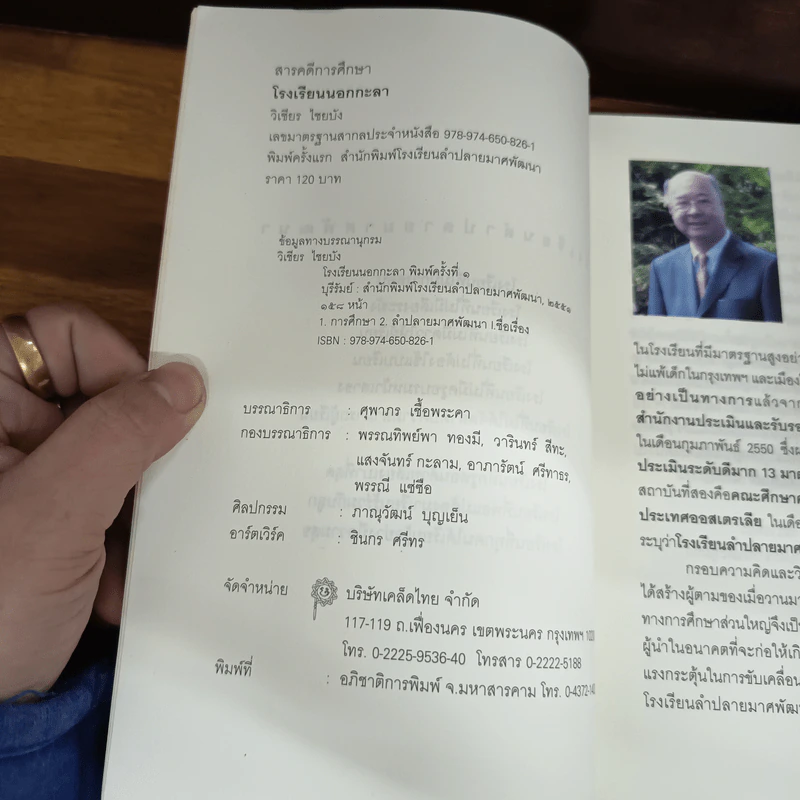 สารคดีการศึกษา
โรงเรียนนอกกะลา
วิเชียร ไชยบัง
เลขมาตรฐานสากลประจำหนังสือ 978-974-650-826-1
พิมพ์ครั้งแรก สำนักพิมพ์โรงเรียนลำปลายมาศพัฒนา
ราคา 120 บาท
ข้อมูลทางบรรณานุกรม
วิเชียร ไชยบัง
โรงเรียนนอกกะลา พิมพ์ครั้งที่ ๑
บุรีรัมย์ : สำนักพิมพ์โรงเรียนลำปลายมาศพัฒนา, ๒๕๕๑
๑๕๘ หน้า
1. การศึกษา 2. ลำปลายมาศพัฒนา I.ชื่อเรื่อง
ISBN : 978-974-650-826-1
บรรณาธิการ : ศุพาภร เชื้อพระคา
กองบรรณาธิการ : พรรณทิพย์พา ทองมี, วารินทร์ สีทะ,
แสงจันทร์ กะลาม, อาภารัตน์ ศรีทาธร,
พรรณี แซ่ซือ
ศิลปกรรม : ภาณุวัฒน์ บุญเย็น
อาร์ตเวิร์ค : ชินกร ศรีทร
จัดจำหน่าย บริษัทเคล็ดไทย จำกัด
117-119 ถ.เฟื่องนคร เขตพระนคร กรุงเทพฯ
โทร. 0-2225-9536-40 โทรสาร 0-2222-5188
พิมพ์ที่ : อภิชาติการพิมพ์ จ.มหาสารคาม โทร.
ในโรงเรียนที่มีมาตรฐานสูง
ไม่แพ้เด็กในกรุงเทพฯ และ
อย่างเป็นทางการแล้ว
สำนักงานประเมินและ
ในเดือนกุมภาพันธ์ 2550
ประเมินระดับดีมาก 13
สถาบันที่สองคือคณะ
ประเทศออสเตรเลีย
ระบุว่าโรงเรียนลำปลายมาศ
กรอบความคิดและ
ได้สร้างผู้ตามของเมื่อวาน
ทางการศึกษาส่วนใหญ่จึง
ผู้นำในอนาคตที่จะก่อให้
แรงกระตุ้นในการขับเคลื่อน
โรงเรียนลำปลายมาศ